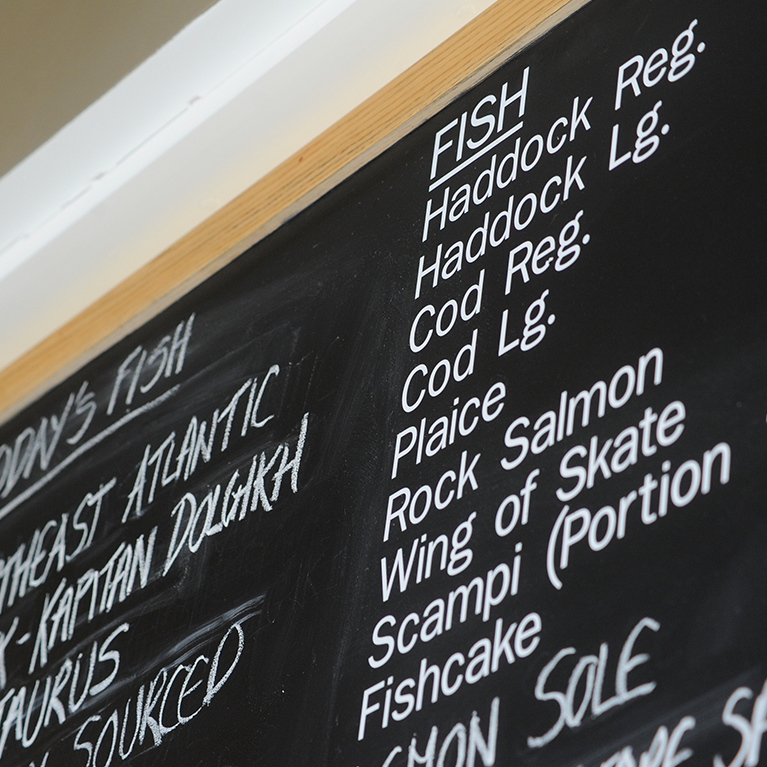 FISH
Haddock Reg.
Haddock Lg.
Cod Reg.
Cod Lg.
Plaice
Rock Salmon
Wing of Skate
Scampi (Portion
Fishcake
SOLE
ODAY'S FISH
THEAST ATLANTIC
-KAPITAN DOLGIKH
TAURUS
SOURCED